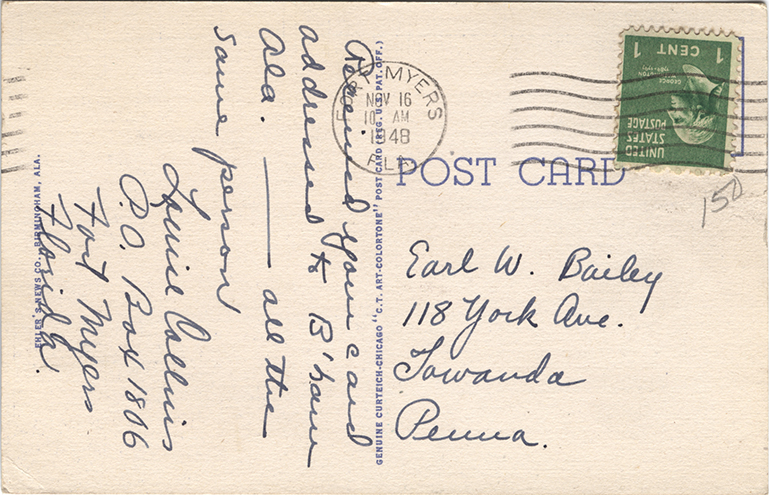 Received your card
addressed to B'ham
Ala. — all the
same person
Louise Collins
P.O. Box 1806
Fort Myers
Florida.
EHLER'S NEWS CO., BIRMINGHAM, ALA.
GENUINE CURTEICH-CHICAGO "C.T. ART-COLORTONE" POST CARD (REG. U.S. PAT. OFF.)
FORT MYERS
NOV 16
10 AM
1948
FLA.
UNITED
STATES
POSTAGE
GEORGE
WASHINGTON
1 CENT 1
POST CARD
150
Earl W. Bailey
118 York Ave.
Towanda
Penna.